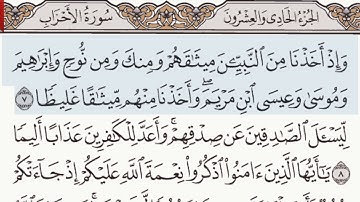 سُورَةُ الأَحْزَابِ
الجُزْءُ الحَادِى وَالعِشْرُونَ
وَإِذْ أَخَذْنَا مِنَ ٱلنَّبِيِّـۧنَ مِيثَٰقَهُمْ وَمِنكَ وَمِن نُّوحٍ وَإِبْرَٰهِيمَ
وَمُوسَىٰ وَعِيسَى ٱبْنِ مَرْيَمَۖ وَأَخَذْنَا مِنْهُم مِّيثَٰقًا غَلِيظًا ٧
لِّيَسْـَٔلَ ٱلصَّٰدِقِينَ عَن صِدْقِهِمْۚ وَأَعَدَّ لِلْكَٰفِرِينَ عَذَابًا أَلِيمًا ٨
يَٰٓأَيُّهَا ٱلَّذِينَ ءَامَنُوا۟ ٱذْكُرُوا۟ نِعْمَةَ ٱللَّهِ عَلَيْكُمْ إِذْ جَآءَتْكُمْ